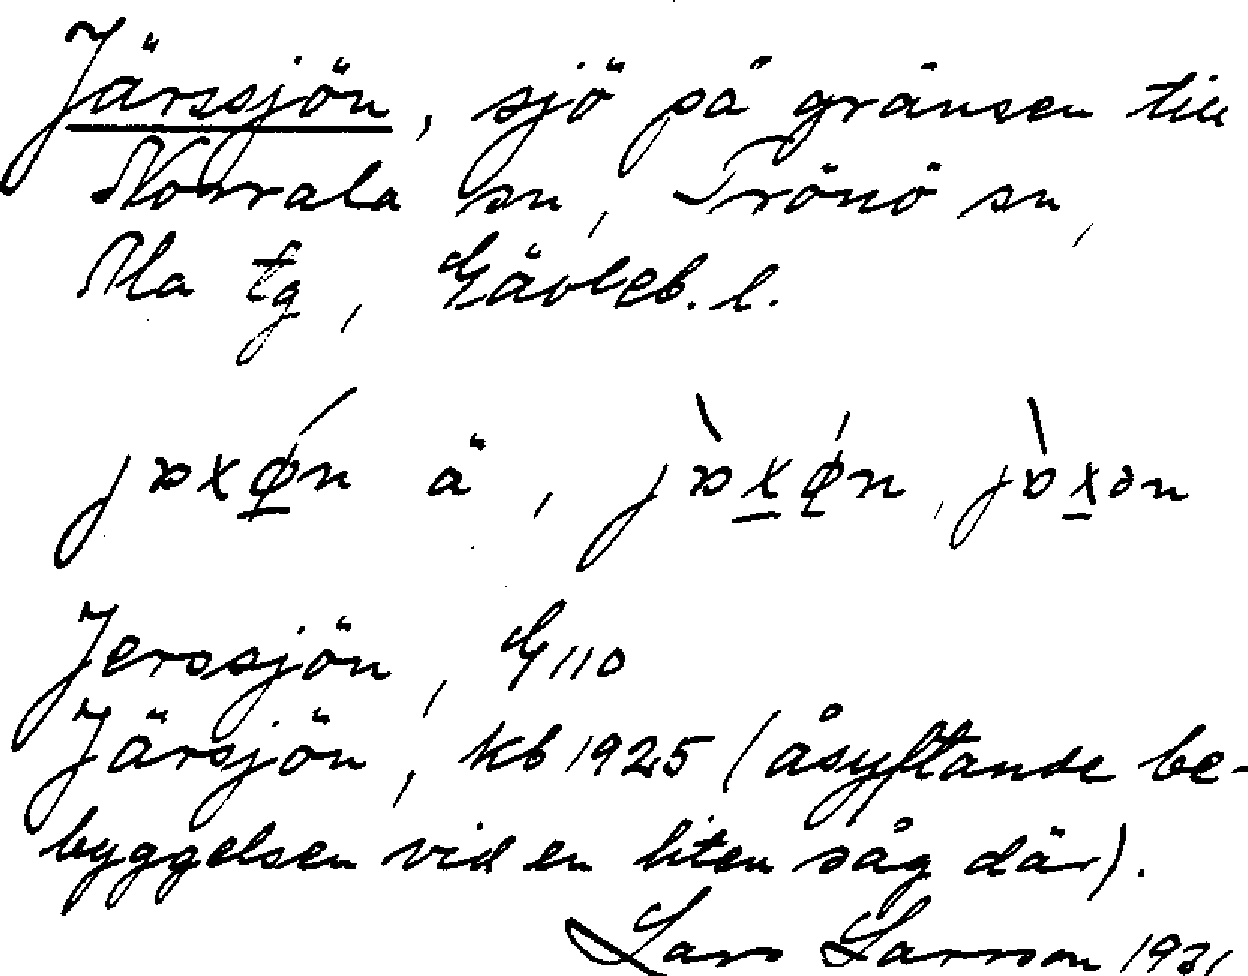 Järssjön, sjö på gränsen till
Norrala sn, Trönö sn,
Nla tg, Gävleb. l.
jɒxǿ̱n ä, jɒ̀x̱ǿ̱n, jɒ̀x̱ən
Jerssjön, G110
Järsjön, kb 1925 (åsyftande be-
byggelsen vid en liten såg där).
Lars Larsson 1931